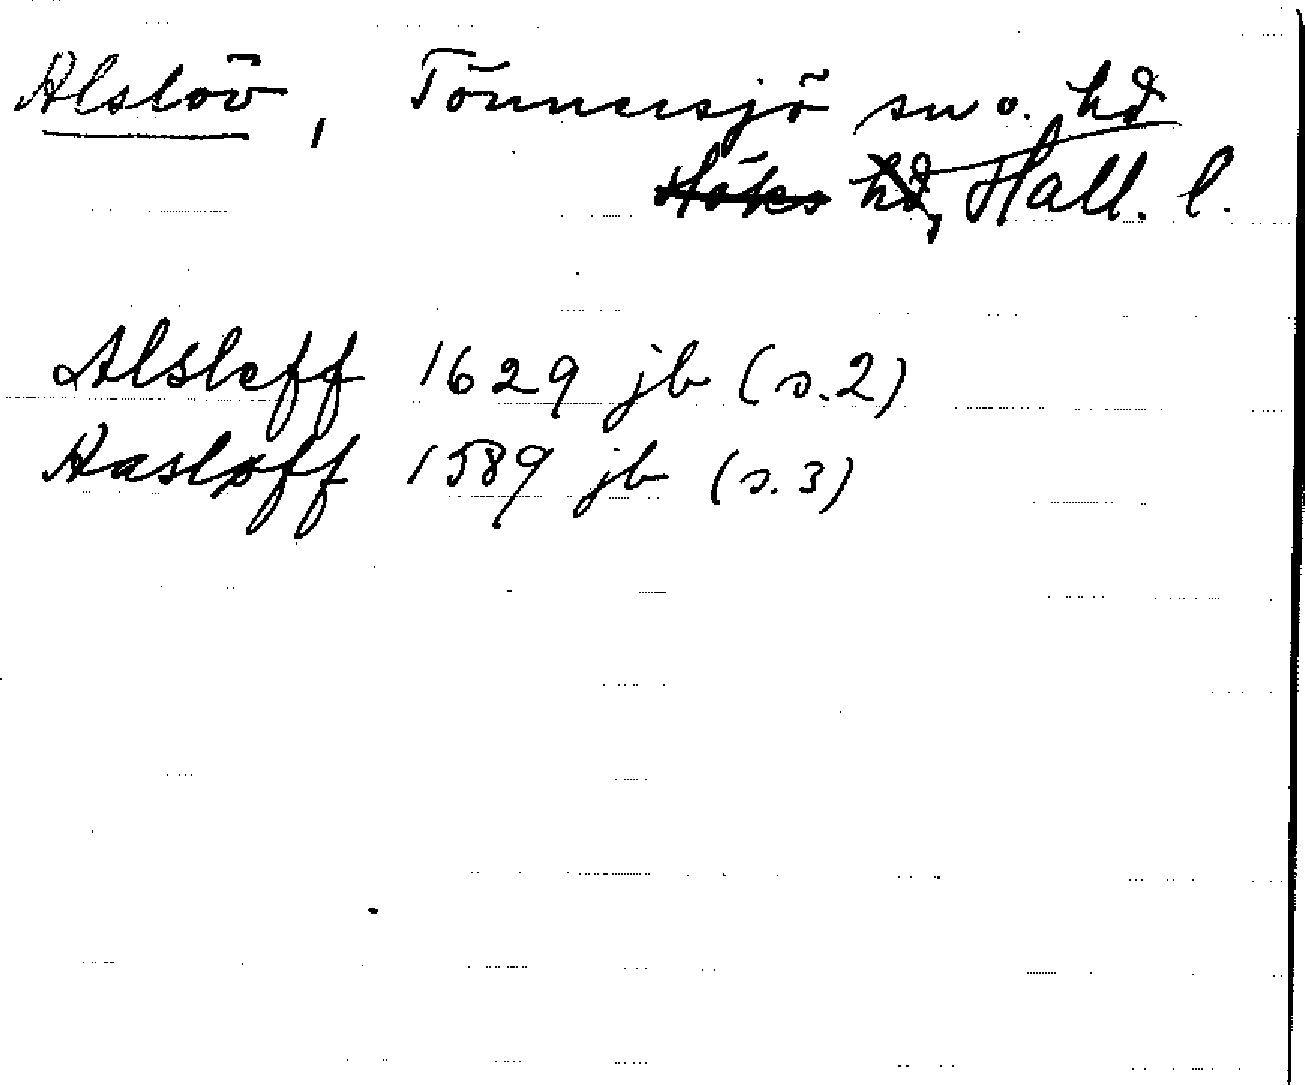 Alslöv, Tönnersjö sn o. hd
Höks hd, Hall. l.
Alsleff 1629 jb (s. 2)
Hasløff 1589 jb (s. 3)